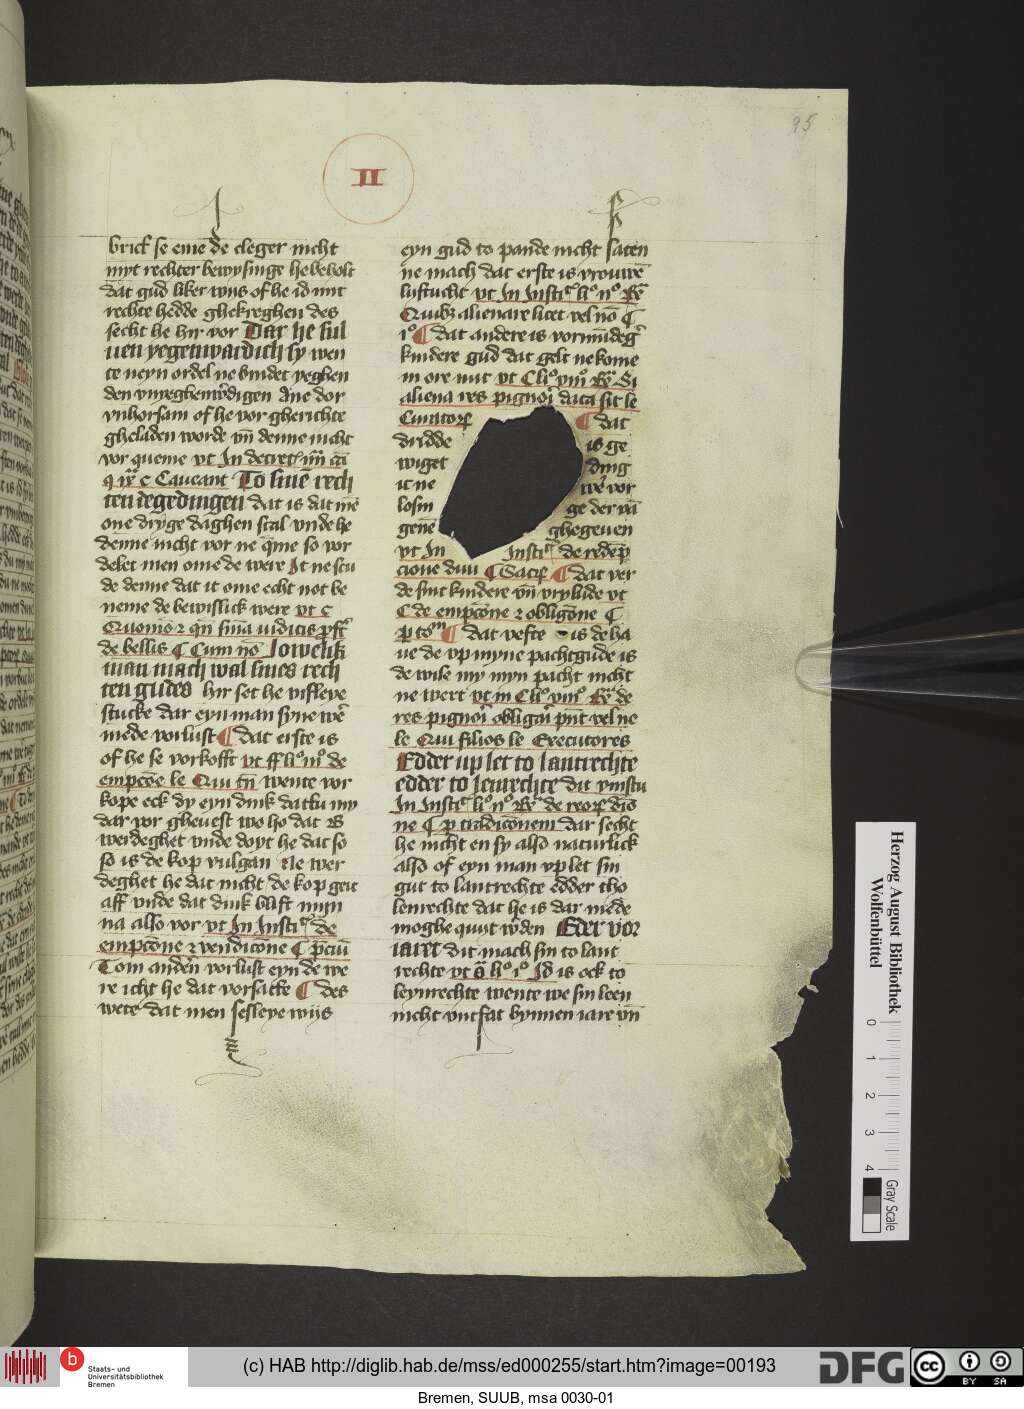 95
II
brict se eme de cleger nicht
myt rechter bewysinge hebebolt
dat gud liker wijs of he id mit
rechte hedde ghekreghen des
secht he hir vor Dar he sul
uen yegenwardich sy wen
te neyn ordel ne bindet yeghen
den ane dor
vnhorsam of he vor gherichte
gheladen worde vn̄ denne nicht
vor queme vt In
Caueant To sine rech
ten degedingen dat is dat mē
one dryge daghen scal vnde he
denne nicht vor ne q̄me so vor
delet men ome de were It ne stu
de denne dat it ome echt not be
neme de bewislick were vt c
de bellis C Cum no Iowelik
man mach wal sines rech
ten gudes hir set he visleye
stucke dar eyn man syne wē
mede vorlust ¶ dat erste is
of he se vorkofft vt ff li° de
empcōe le Qui wente vor
kope eck dy eyn dink datku my
dar vor gheuest wo ho dat is
werdeghet vnde doyt he dat so
so is de kop vulgan Ne wer
deghet he dat nicht de kop geit
aff vnde dat dink blift myn
na also vor vt In Insti de
empcōne 2 vendicōne C
Tom andern vorlust eyn de we
re icht he dat vorsatte ¶ des
wete dat men sesleye wijs
eyn gud to pande nicht saten
ne mach dat erste is vrouwē
luftucht vt In Insti li° n°
Quibz alienare licet vel nō C
i° ¶ dat andere is
kindere gud dat gelt ne kome
in ore nut vt C li° viii° Si
aliena res pignori data sit le
¶ dat
dridde is ge
wiget ding
it ne wē vor
losin ge der vā
genē ghegeuen
vt In Insti de
cione diui ¶ dat ver
de sint kindere vn̄ vrylude vt
C de empcōne 2 obligōne C
¶ dat vefte is de ha
ue de vp myne pachtgude is
de wile my myn pacht nicht
ne wert vt in C li° viii° de
res
le Qui filios le Executores
Edder up let to lantrechte
edder to lenrechte dit vinstu
In Insti li° n° de
ne C p tradicōnem dar secht
he nicht en sy also naturlick
also of eyn man vp let sin
gut to lantrechte edder tho
lenrechte dat he is dar mede
moghe quijt wden Eder vor
iaret dit mach sin to lant
rechte vt li° i° Id is ock to
leynrechte wente we sin leen
nicht vntfat bynnen iare vn̄
Herzog August Bibliothek
Wolfenbüttel
0 1 2 3 4
Gray Scale
b
Staats- und
Universitätsbibliothek
Bremen
(c) HAB http://diglib.hab.de/mss/ed000255/start.htm?image=00193
DFG
cc
BY SA
Bremen, SUUB, msa 0030-01